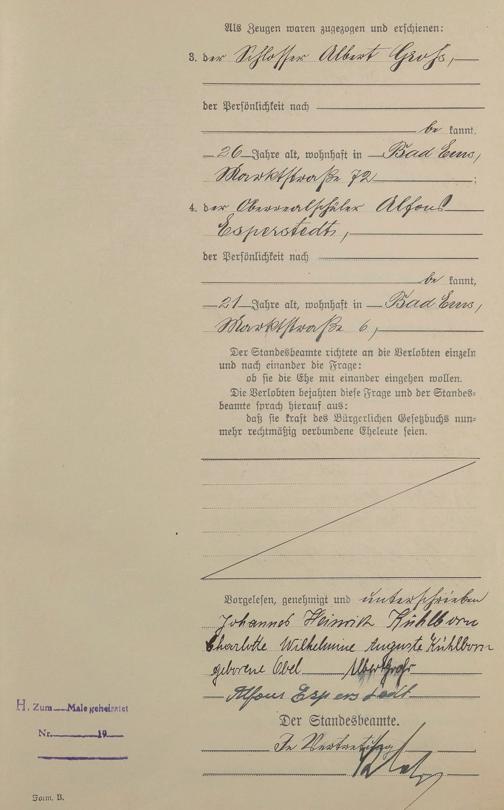 Als Zeugen waren zugezogen und erschienen:
3. der Schlosser Albert Groß,
der Persönlichkeit nach
be kannt,
26 Jahre alt, wohnhaft in Bad Ems,
Marktstraße 72;
4. der Oberrealschüler Alfons
Esperstedt,
der Persönlichkeit nach
be kannt,
21 Jahre alt, wohnhaft in Bad Ems,
Marktstraße 6,
Der Standesbeamte richtete an die Verlobten einzeln
und nach einander die Frage:
ob sie die Ehe mit einander eingehen wollen.
Die Verlobten bejahten diese Frage und der Standes-
beamte sprach hierauf aus:
daß sie kraft des Bürgerlichen Gesetzbuchs nun-
mehr rechtmäßig verbundene Eheleute seien.
Vorgelesen, genehmigt und unterschrieben
Johannes Heinrich Kühlborn
Charlotte Wilhelmine Auguste Kühlborn
geborene Obel Albert Groß
Alfons Esperstedt
Der Standesbeamte.
In Vertretung
H. Zum Male geheiratet
Nr. 19
Form. B.